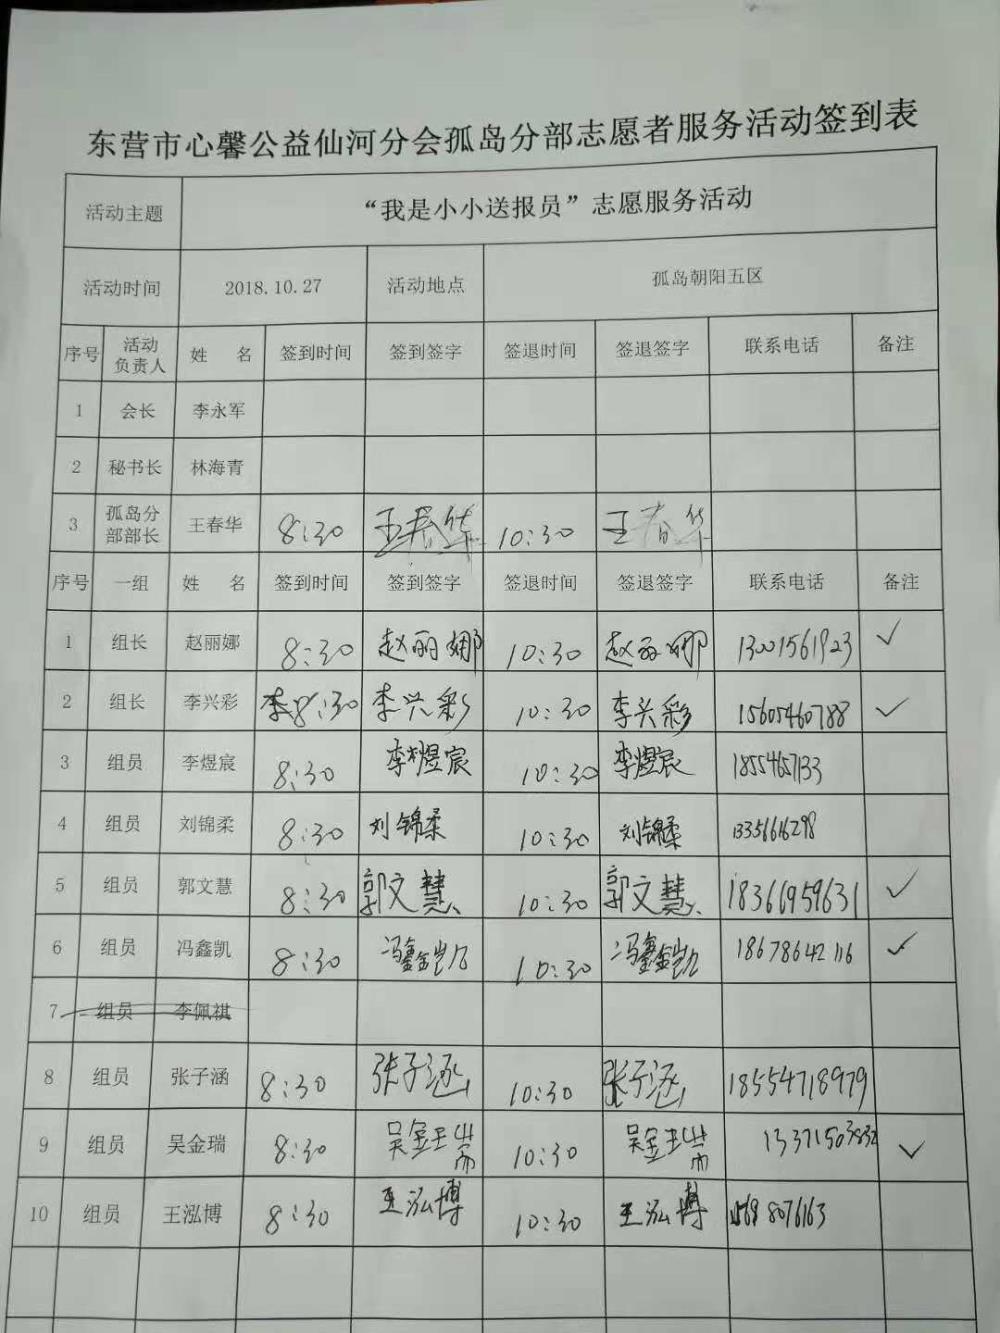 东营市心馨公益仙河分会孤岛分部志愿者服务活动签到表
活动主题 “我是小小送报员”志愿服务活动
活动时间 2018.10.27 活动地点 孤岛朝阳五区
序号 活动负责人 姓 名 签到时间 签到签字 签退时间 签退签字 联系电话 备注
1 会长 李永军
2 秘书长 林海青
3 孤岛分部部长 王春华 8:30 王春华 10:30 王春华
序号 一组 姓 名 签到时间 签到签字 签退时间 签退签字 联系电话 备注
1 组长 赵丽娜 8:30 赵丽娜 10:30 赵丽娜 ✓
2 组长 李兴彩 8:30 李兴彩 10:30 李兴彩 15605460788 ✓
3 组员 李煜宸 8:30 李煜宸 10:30 李煜宸
4 组员 刘锦柔 8:30 刘锦柔 10:30 刘锦柔
5 组员 郭文慧 8:30 郭文慧 10:30 郭文慧 18366959631 ✓
6 组员 冯鑫凯 8:30 冯鑫凯 10:30 冯鑫凯 18678642116 ✓
7 组员 李佩祺
8 组员 张子涵 8:30 张子涵 10:30 张子涵 18554718979
9 组员 吴金瑞 8:30 吴金瑞 10:30 吴金瑞 ✓
10 组员 王泓博 8:30 王泓博 10:30 王泓博